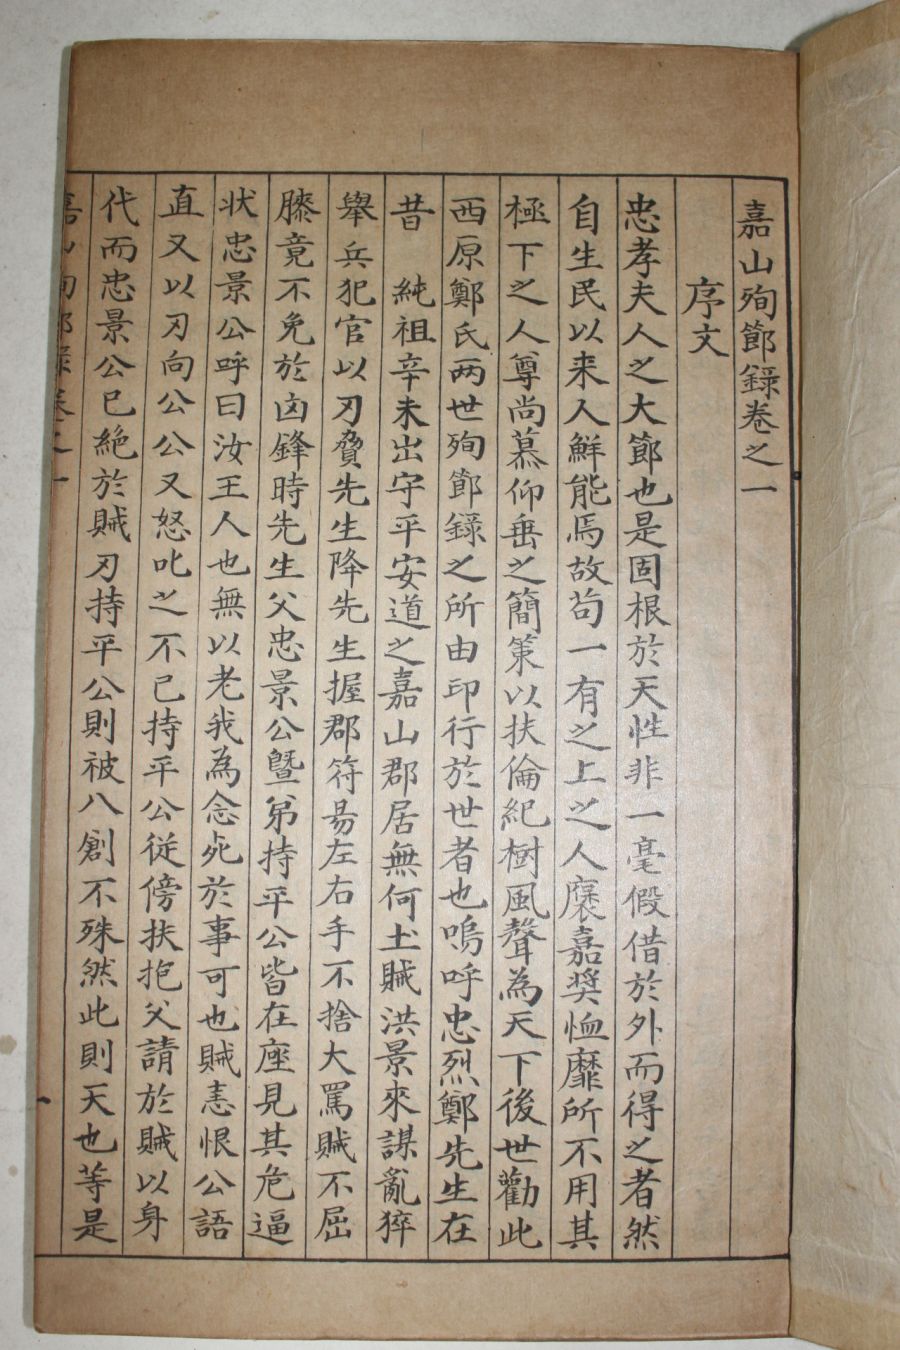 嘉山殉節錄卷之一
序文
忠孝夫人之大節也是固根於天性非一毫假借於外而得之者然
自生民以来人鮮能焉故苟一有之上之人褒嘉奬恤靡所不用其
極下之人尊尚慕仰垂之簡策以扶倫紀樹風聲為天下後世勸此
西原鄭氏两世殉節錄之所由印行於世者也嗚呼忠烈鄭先生在
昔 純祖辛未出守平安道之嘉山郡居無何土賊洪景來謀亂猝
舉兵犯官以刃脅先生降先生握郡符昜左右手不捨大罵賊不屈
膝竟不免於凶鋒時先生父忠景公曁弟持平公皆在座見其危逼
状忠景公呼曰汝王人也無以老我為念死於事可也賊恚恨公語
直又以刃向公公又怒叱之不已持平公従傍扶抱父請於賊以身
代而忠景公已絶於賊刃持平公則被八創不殊然此則天也等是
嘉山殉節錄卷之一
一